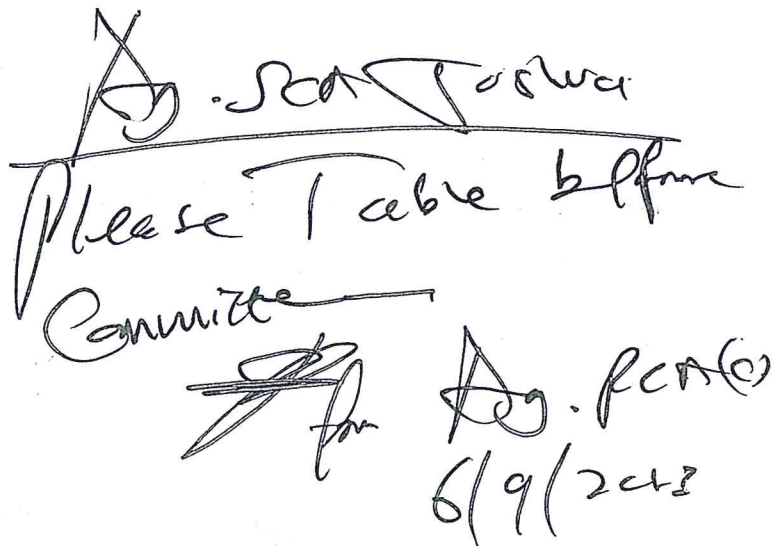 Ag. SCA Joshua
Please Table before
Committee
for Ag. PCA(C)
6/9/2013